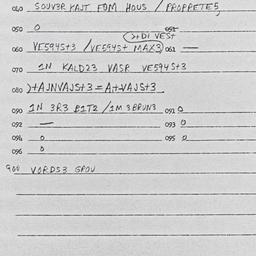 040 SOUV3R KAJT FOM HOUS / PROPRETES,
050 0 051
()+DI VEST
060 VE594S+3 /VE594S+ MAX3) 061 —
070 1N KALD23 VASR VE594S+3
080 )+AJNVAJS+3 = A+VAJS+3
090 1N 3R3 B1T2 /1M 3BRUN3 091 0
092 — 093 0
094 0 095 0
096 0
900 VORDS3 GROU